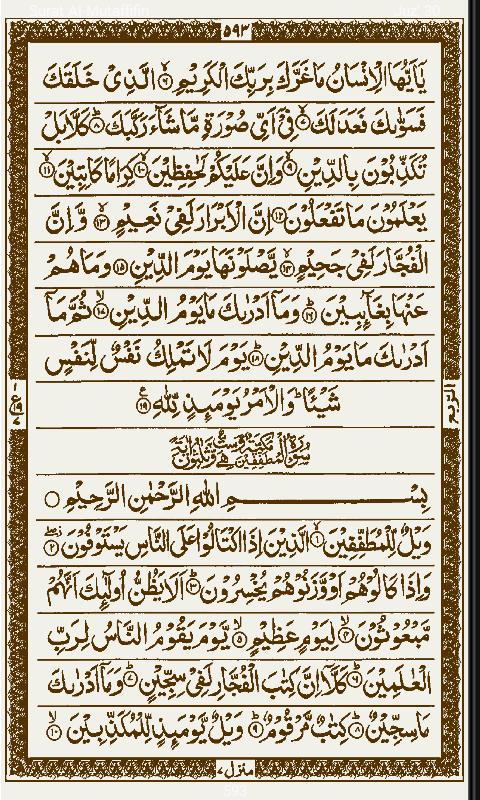 Surat Al-Mutaffifin Juz' 30
٥٩٣
يٰٓاَيُّهَا الْاِنْسَانُ مَا غَرَّكَ بِرَبِّكَ الْكَرِيْمِ ۙ۶ الَّذِيْ خَلَقَكَ
فَسَوّٰىكَ فَعَدَلَكَ ۙ۷ فِيْٓ اَيِّ صُوْرَةٍ مَّا شَآءَ رَكَّبَكَ ؕ۸ كَلَّا بَلْ
تُكَذِّبُوْنَ بِالدِّيْنِ ۙ۹ وَاِنَّ عَلَيْكُمْ لَحٰفِظِيْنَ ۙ۱۰ كِرَامًا كَاتِبِيْنَ ۙ۱۱
يَعْلَمُوْنَ مَا تَفْعَلُوْنَ ۱۲ اِنَّ الْاَبْرَارَ لَفِيْ نَعِيْمٍ ۚ۱۳ وَّ اِنَّ
الْفُجَّارَ لَفِيْ جَحِيْمٍ ۚۖ۱۴ يَّصْلَوْنَهَا يَوْمَ الدِّيْنِ ۱۵ وَمَا هُمْ
عَنْهَا بِغَآئِبِيْنَ ؕ۱۶ وَمَآ اَدْرٰىكَ مَا يَوْمُ الدِّيْنِ ۙ۱۷ ثُمَّ مَآ
اَدْرٰىكَ مَا يَوْمُ الدِّيْنِ ؕ۱۸ يَوْمَ لَا تَمْلِكُ نَفْسٌ لِّنَفْسٍ
شَيْئًا ؕ وَالْاَمْرُ يَوْمَئِذٍ لِّلّٰهِ ۱۹
الربع
ع
۱۹
۷
سُوْرَةُ الْمُطَفِّفِيْنَ مَكِّيَّةٌ وَّهِيَ سِتٌّ وَّثَلٰثُوْنَ اٰيَةً
بِسْمِ اللّٰهِ الرَّحْمٰنِ الرَّحِيْمِ
وَيْلٌ لِّلْمُطَفِّفِيْنَ ۙ۱ الَّذِيْنَ اِذَا اكْتَالُوْا عَلَى النَّاسِ يَسْتَوْفُوْنَ ۲
وَاِذَا كَالُوْهُمْ اَوْ وَّزَنُوْهُمْ يُخْسِرُوْنَ ؕ۳ اَلَا يَظُنُّ اُولٰٓئِكَ اَنَّهُمْ
مَّبْعُوْثُوْنَ ۙ۴ لِيَوْمٍ عَظِيْمٍ ۙ۵ يَّوْمَ يَقُوْمُ النَّاسُ لِرَبِّ
الْعٰلَمِيْنَ ؕ۶ كَلَّآ اِنَّ كِتٰبَ الْفُجَّارِ لَفِيْ سِجِّيْنٍ ؕ۷ وَمَآ اَدْرٰىكَ
مَا سِجِّيْنٌ ؕ۸ كِتٰبٌ مَّرْقُوْمٌ ؕ۹ وَيْلٌ يَّوْمَئِذٍ لِّلْمُكَذِّبِيْنَ ۙ۱۰
منزل ۷
593